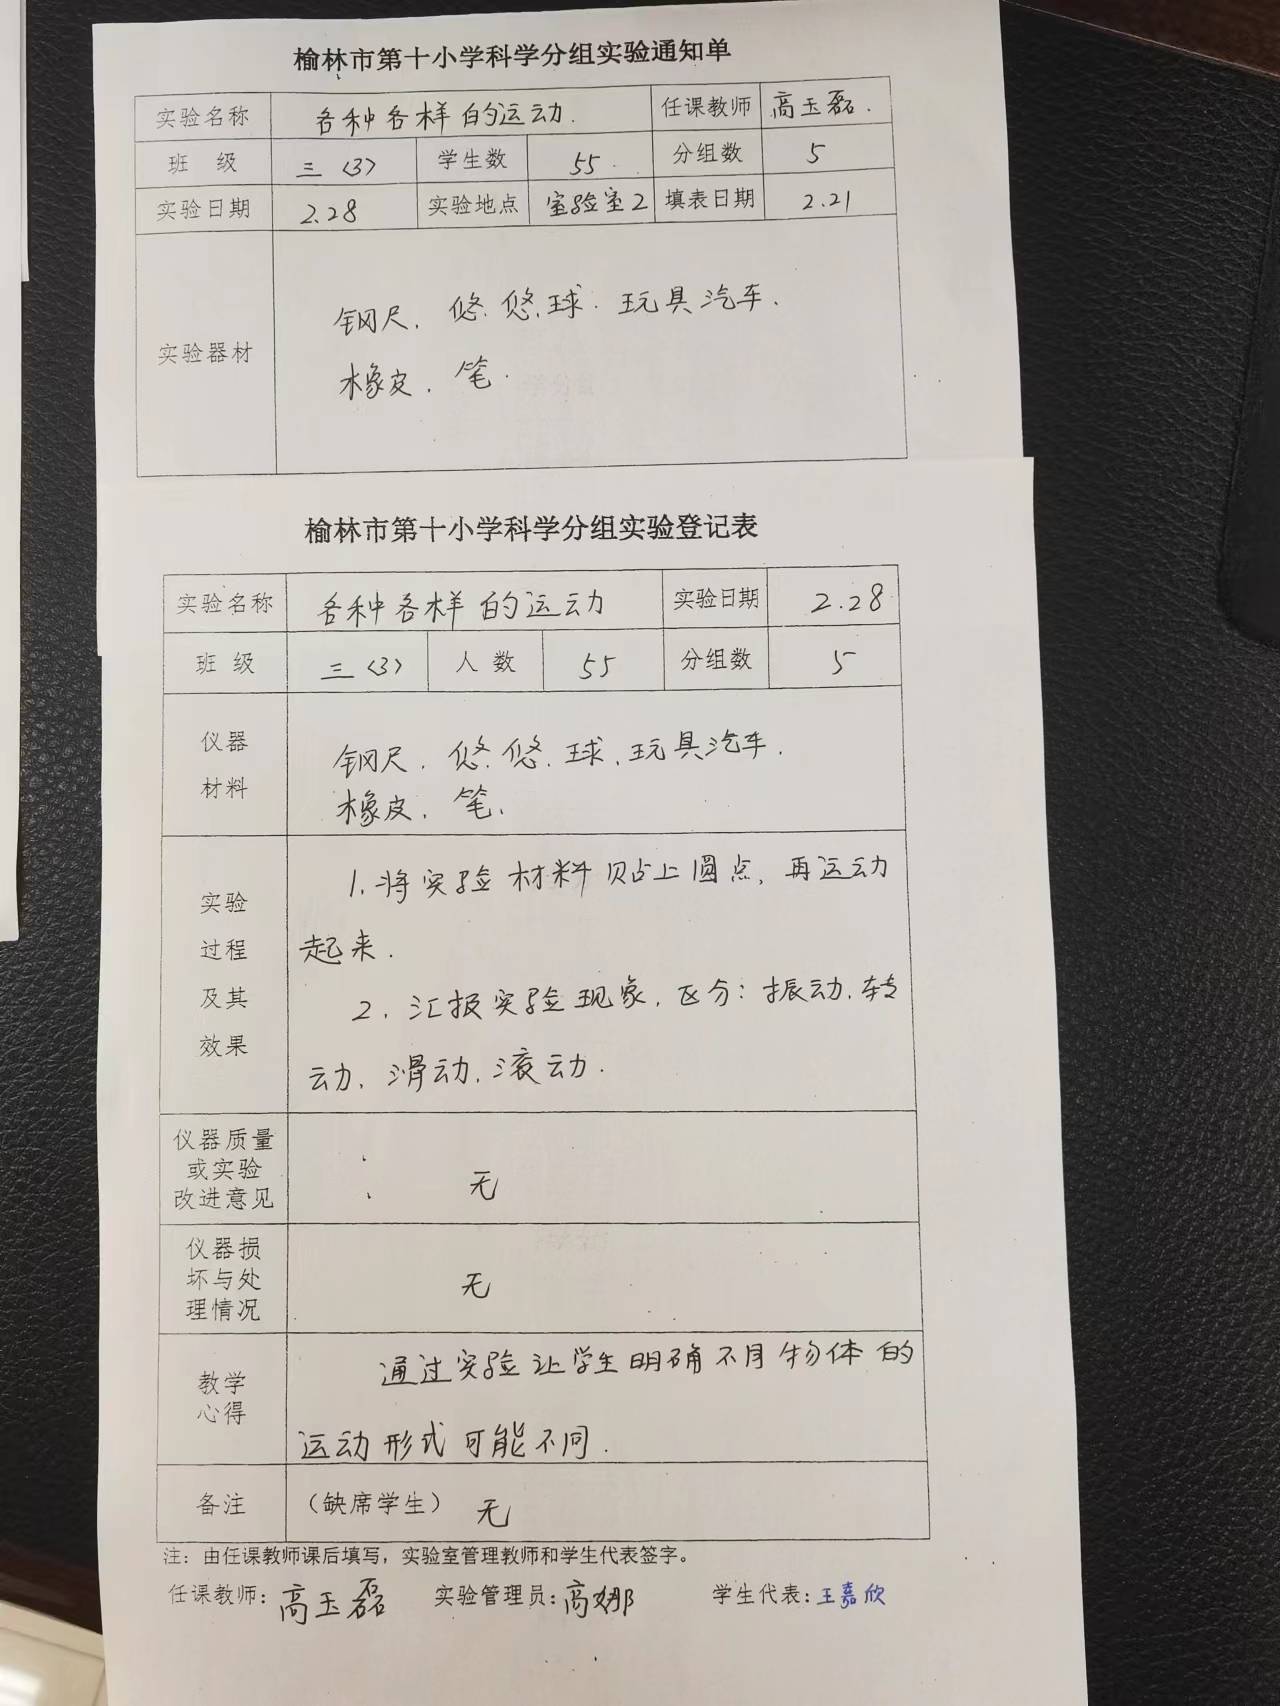 榆林市第十小学科学分组实验通知单
实验名称 各种各样的运动. 任课教师 高玉磊.
班 级 三〈3〉 学生数 55. 分组数 5
实验日期 2.28 实验地点 实验室2 填表日期 2.21
实验器材
钢尺. 悠悠球. 玩具汽车.
橡皮. 笔.
榆林市第十小学科学分组实验登记表
实验名称 各种各样的运动 实验日期 2.28
班 级 三〈3〉 人 数 55 分组数 5
仪器
材料
钢尺. 悠悠球. 玩具汽车.
橡皮. 笔.
实验
过程
及其
效果
1.将实验材料贴上圆点, 再运动
起来.
2. 汇报实验现象, 区分: 振动. 转
动. 滑动. 滚动.
仪器质量
或实验
改进意见
无
仪器损
坏与处
理情况
无
教学
心得
通过实验让学生明确不同物体的
运动形式可能不同.
备注 (缺席学生) 无
注：由任课教师课后填写，实验室管理教师和学生代表签字。
任课教师: 高玉磊 实验管理员: 高娜 学生代表: 王嘉欣